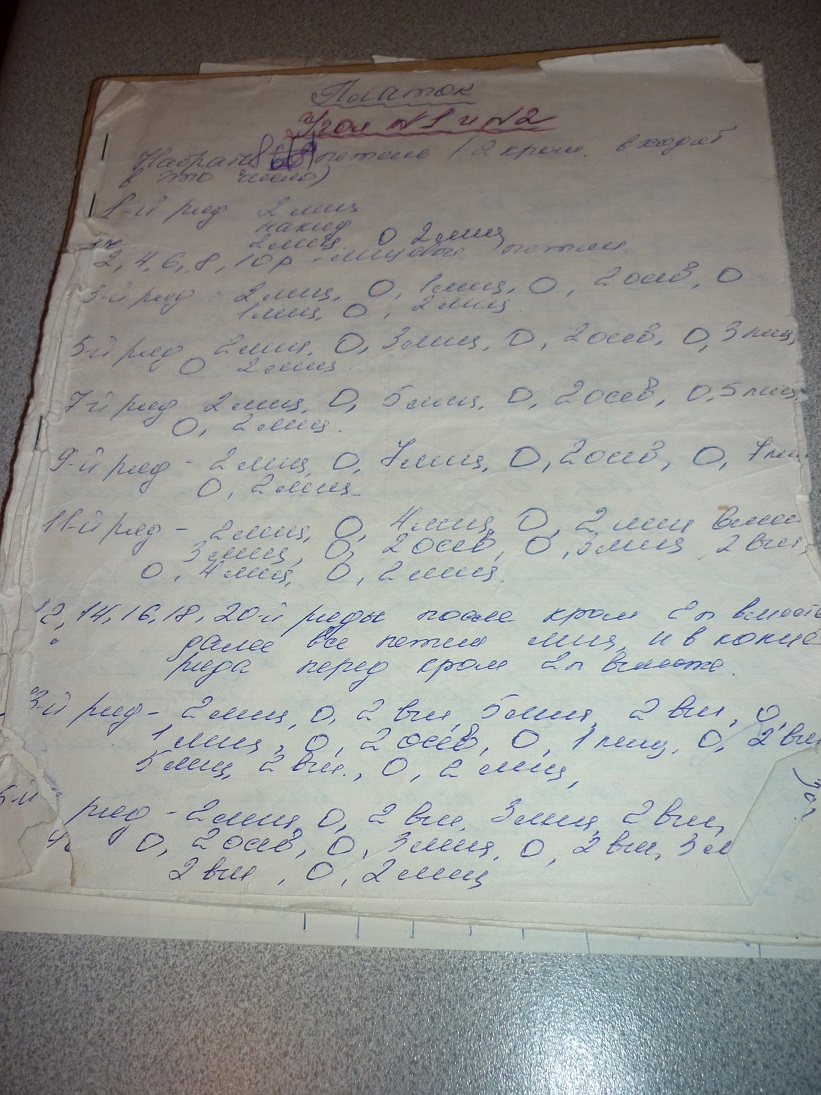 Платок
Угол №1 и №2
Набрать 8 петель (2 кром. входят
в это число)
1-й ряд 2 лиц
накид
2 лиц, 0 2 лиц
2, 4, 6, 8, 10 р - лицевые петли.
3-й ряд - 2 лиц, 0, 1 лиц, 0, 2 осев, 0
1 лиц, 0, 2 лиц
5-й ряд 2 лиц, 0, 3 лиц, 0, 2 осев, 0, 3 лиц,
0 2 лиц.
7-й ряд 2 лиц, 0, 5 лиц, 0, 2 осев, 0, 5 лиц
0, 2 лиц.
9-й ряд - 2 лиц, 0, 7 лиц, 0, 2 осев, 0, 7 лиц
0, 2 лиц.
11-й ряд - 2 лиц, 0, 4 лиц, 0, 2 лиц вмес
3 лиц, 0, 2 осев, 0, 3 лиц, 2 вм,
0, 4 лиц, 0, 2 лиц.
12, 14, 16, 18, 20-й ряды после кром 2 п вместе
далее все петли лиц, и в конце
ряда перед кром 2 п вместе.
3-й ряд - 2 лиц, 0, 2 вм, 5 лиц, 2 вм, 0,
1 лиц, 0, 2 осев, 0, 1 лиц, 0, 2 вм
5 лиц, 2 вм., 0, 2 лиц,
5-й ряд - 2 лиц, 0, 2 вм, 3 лиц, 2 вм,
0, 2 осев, 0, 3 лиц, 0, 2 вм, 3 л
2 вм, 0, 2 лиц